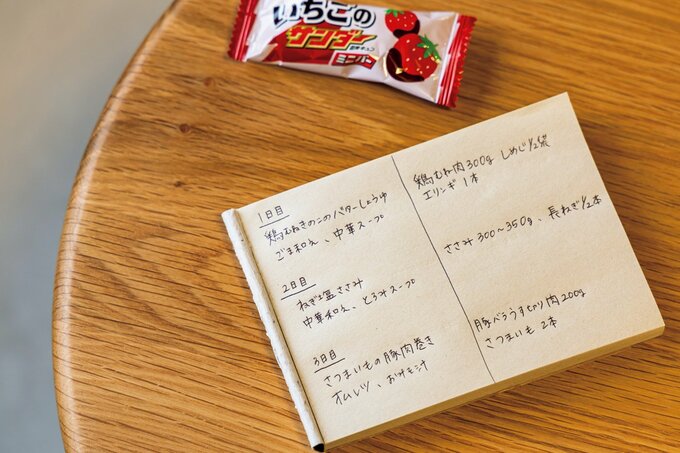 いちごの
サンダー
ミニバー
1日目
鶏むねきのこのバターしょうゆ
ごま和え、中華スープ
2日目
ねぎ塩ささみ
中華和え、とろみスープ
3日目
さつまいもの豚肉巻き
オムレツ、おみそ汁
鶏むね肉300g しめじ1/2袋
エリンギ 1本
ささみ 300〜350g、長ねぎ1/2本
豚バラうすぎり肉200g
さつまいも 2本